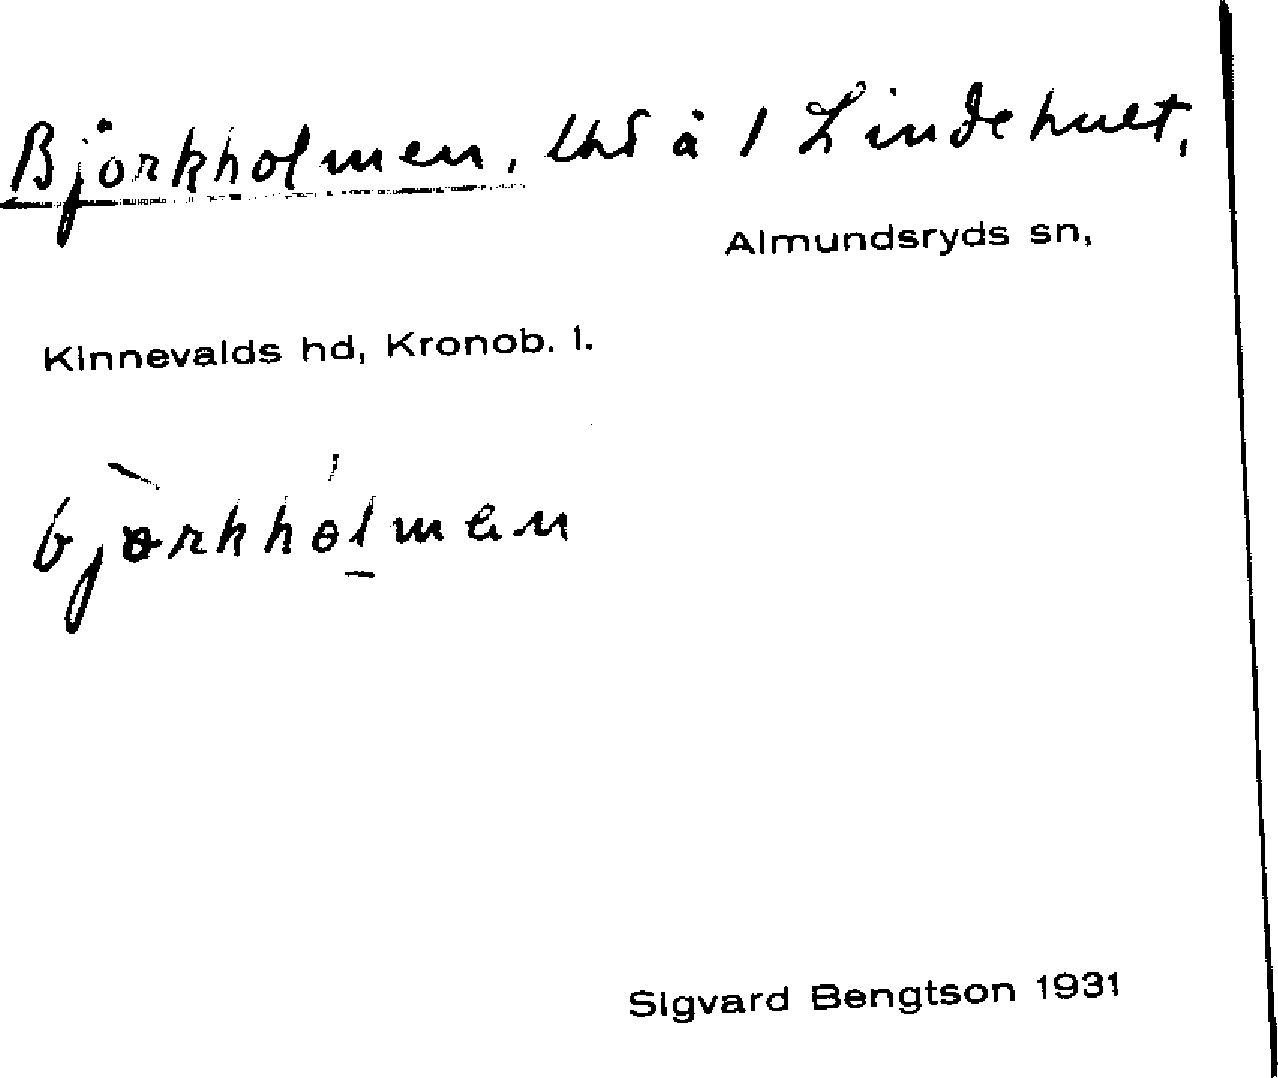 Björkholmen, lhs å 1 Lindehult,
Almundsryds sn,
Kinnevalds hd, Kronob. l.
bjørkhòlmen
Sigvard Bengtson 1931